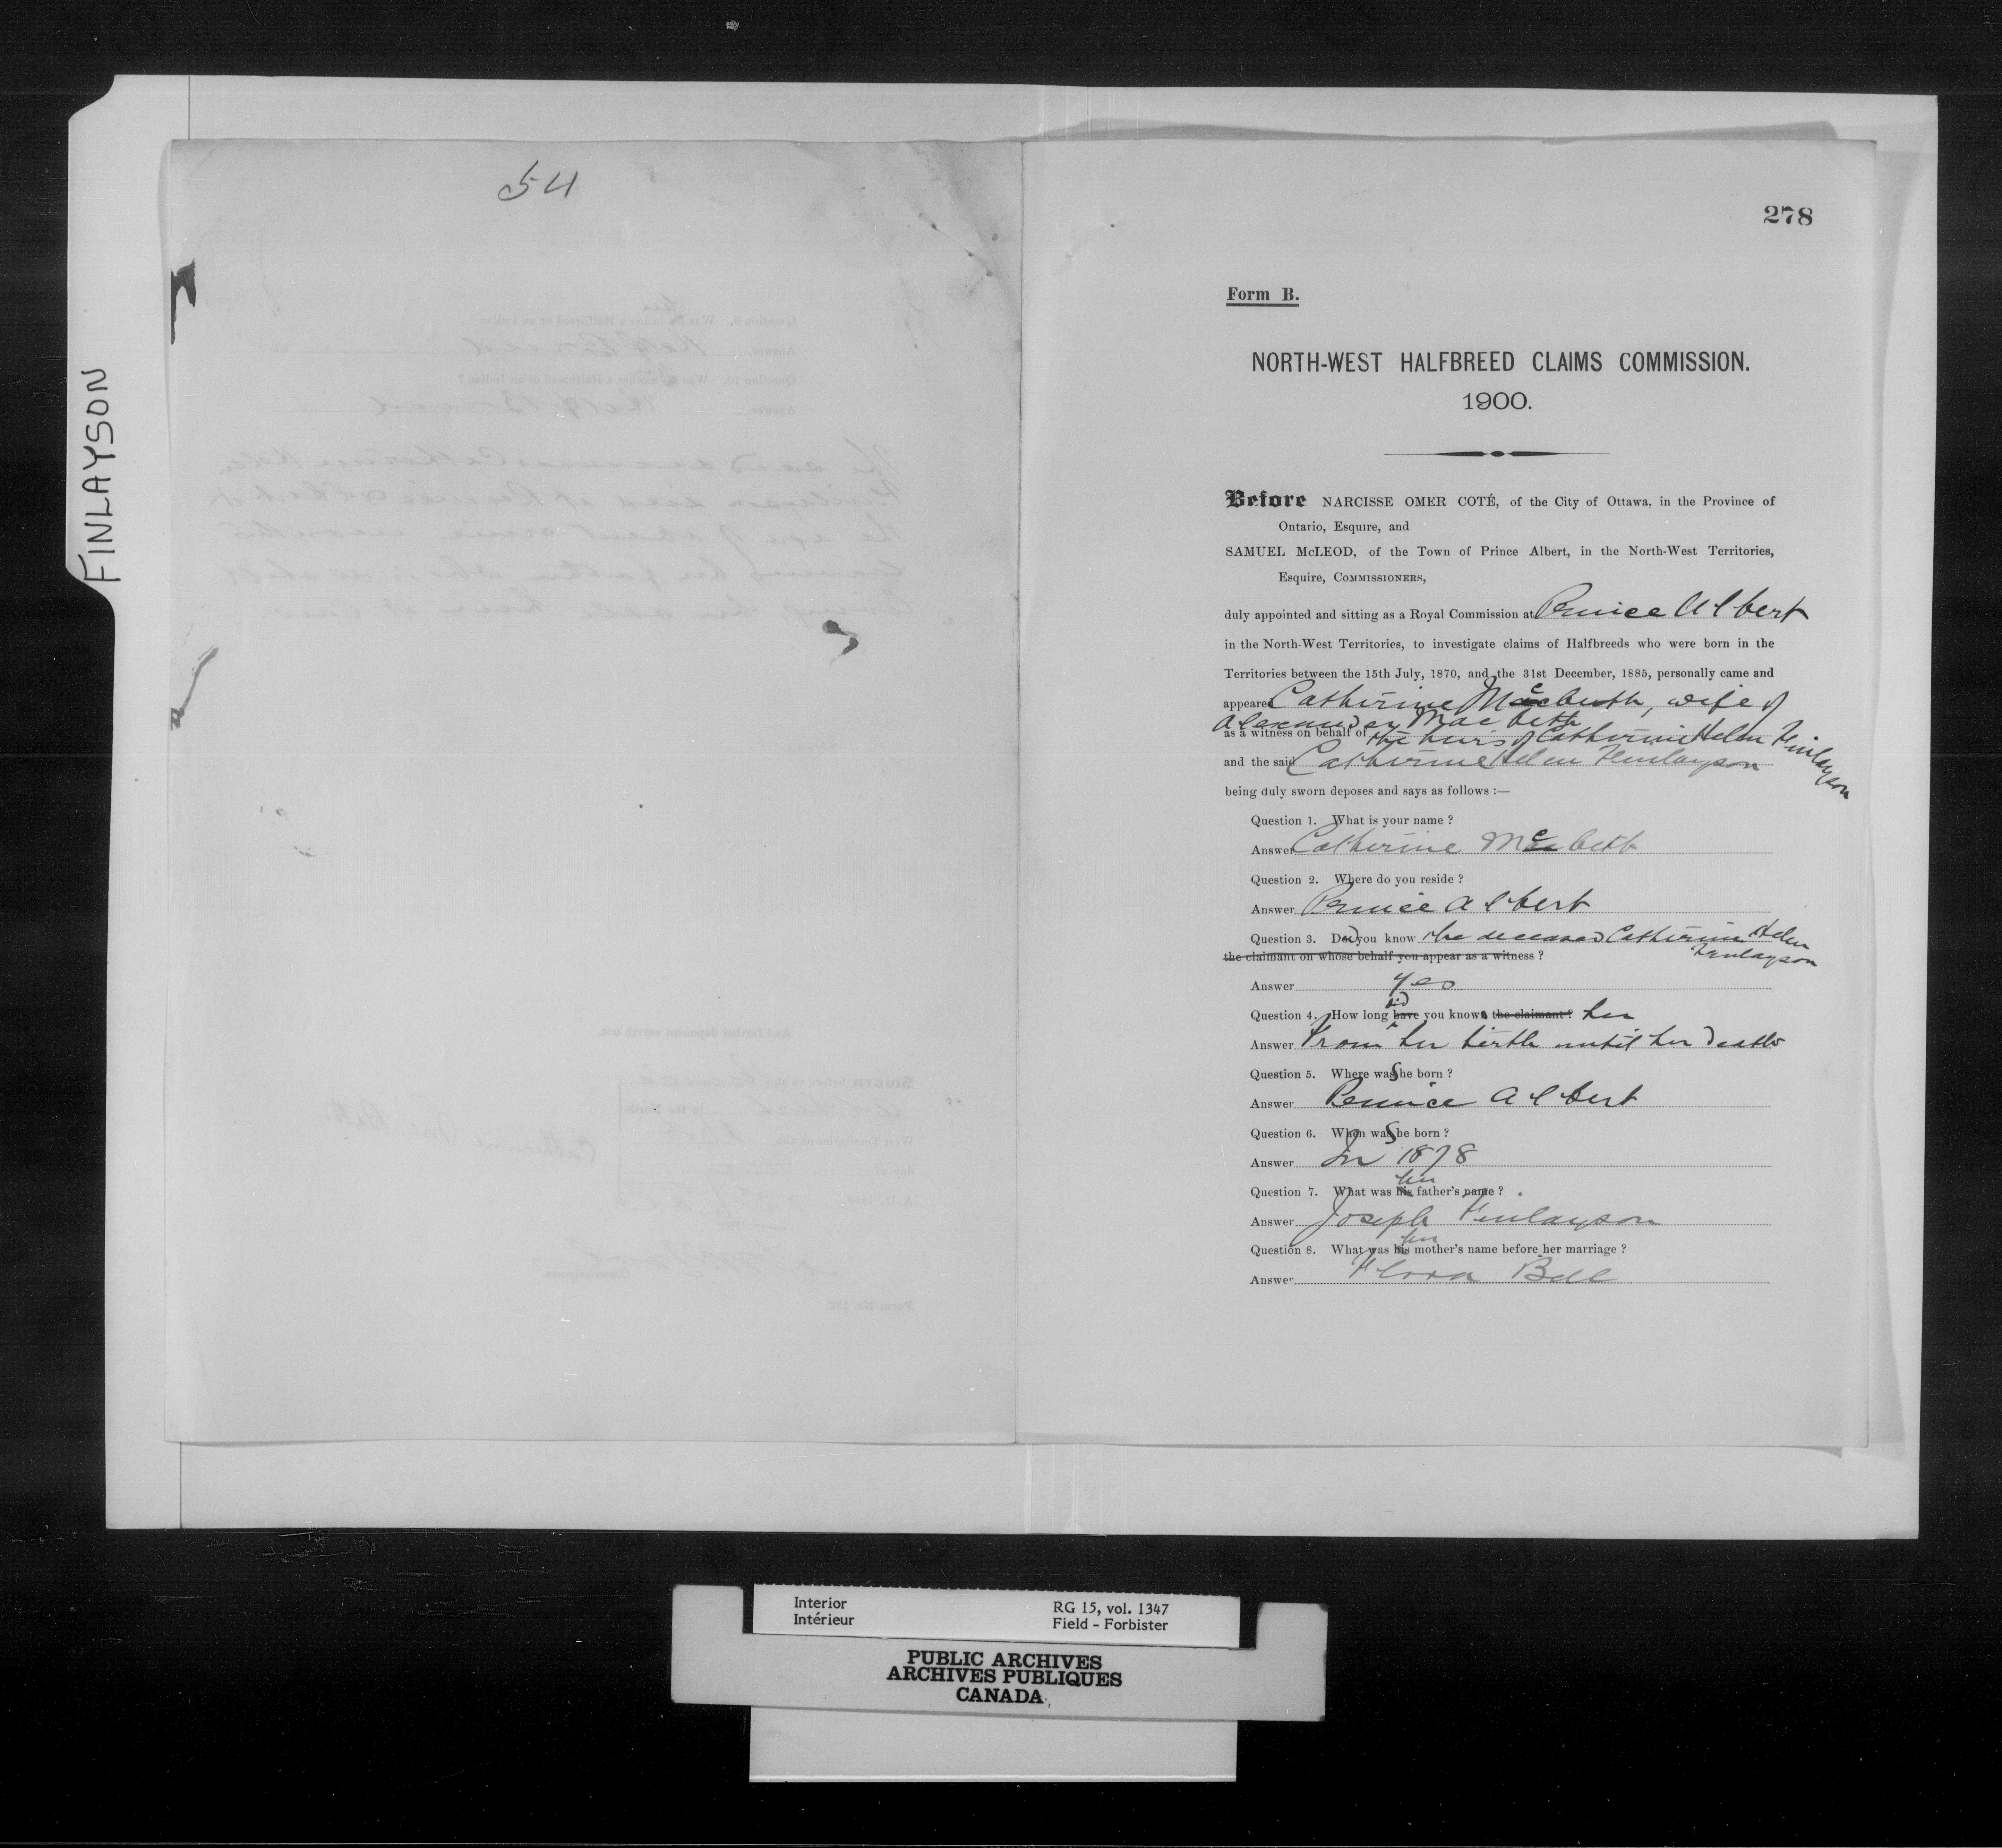 FINLAYSON
54
278
Form B.
NORTH-WEST HALFBREED CLAIMS COMMISSION.
1900.
Before NARCISSE OMER COTÉ, of the City of Ottawa, in the Province of
Ontario, Esquire, and
SAMUEL McLEOD, of the Town of Prince Albert, in the North-West Territories,
Esquire, COMMISSIONERS,
duly appointed and sitting as a Royal Commission at Prince Albert
in the North-West Territories, to investigate claims of Halfbreeds who were born in the
Territories between the 15th July, 1870, and the 31st December, 1885, personally came and
appeared Catherine McBeth, wife of
Alexander MacBeth
as a witness on behalf of the heirs of Catherine Helen Finlayson
and the said Catherine Helen Finlayson
being duly sworn deposes and says as follows :—
Question 1. What is your name ?
Answer Catherine McBeth
Question 2. Where do you reside ?
Answer Prince Albert
Question 3. Did you know the deceased Catherine Helen Finlayson
the claimant on whose behalf you appear as a witness ?
Answer Yes
Question 4. How long have did you know the claimant ? her
Answer From her birth until her death
Question 5. Where was She born ?
Answer Prince Albert
Question 6. When was She born ?
Answer In 1878
Question 7. What was his her father's name ?
Answer Joseph Finlayson
Question 8. What was his her mother's name before her marriage ?
Answer Flora Bell
Interior
Intérieur
RG 15, vol. 1347
Field - Forbister
PUBLIC ARCHIVES
ARCHIVES PUBLIQUES
CANADA